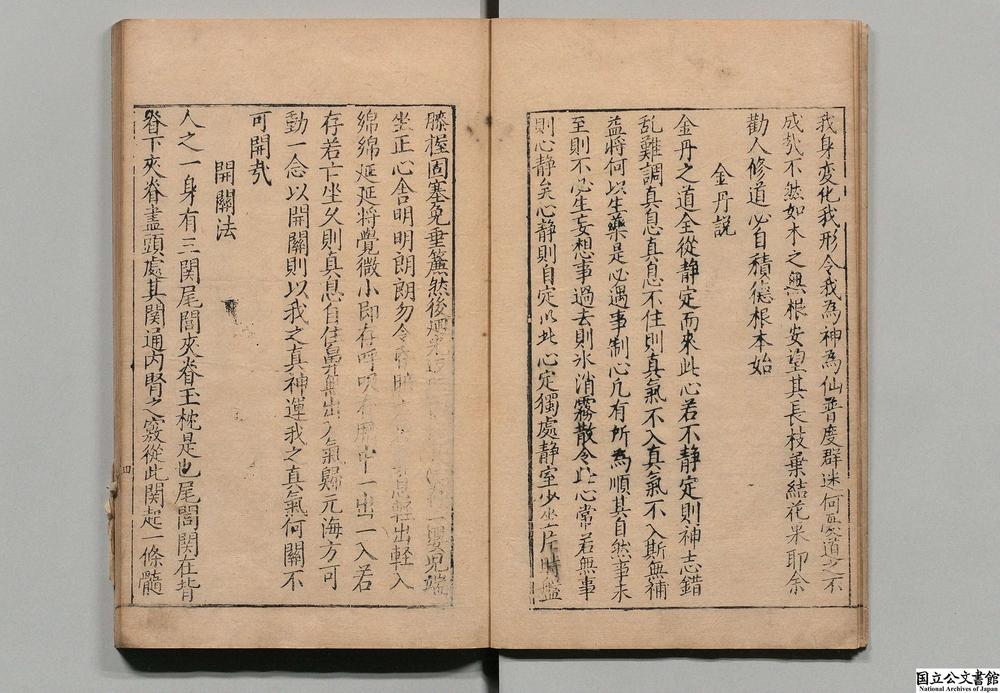 我身变化我形令我為神為仙普度群迷何憂道之不
成哉不然如木之無根安望其長枝葉結花果耶余
勸人修道必自積德根本始
金丹説
金丹之道全從静定而來此心若不静定則神志錯
乱難調真息真息不住則真氣不入真氣不入斯無補
益將何以生藥是必遇事制心凢有所為順其自然事未
至則不必生妄想事過去則氷消霧散令此心常若無事
則心静矣心静則自定以此心定獨處静室少坐片時盤
膝握固塞兌垂簾然後一嬰児端
坐正心舍明明朗朗勿令昏暗息輕出軽入
綿綿延延將覺微小即存呼吸在臍中一出一入若
存若亡坐久則真息自住鼻無出入氣歸元海方可
動一念以開關則以我之真神運我之真氣何關不
可開哉
開關法
人之一身有三関尾閭夾脊玉枕是也尾閭関在背
脊下夾脊盡頭處其関通内腎之竅從此関起一條髓
四
国立公文書館
National Archives of Japan